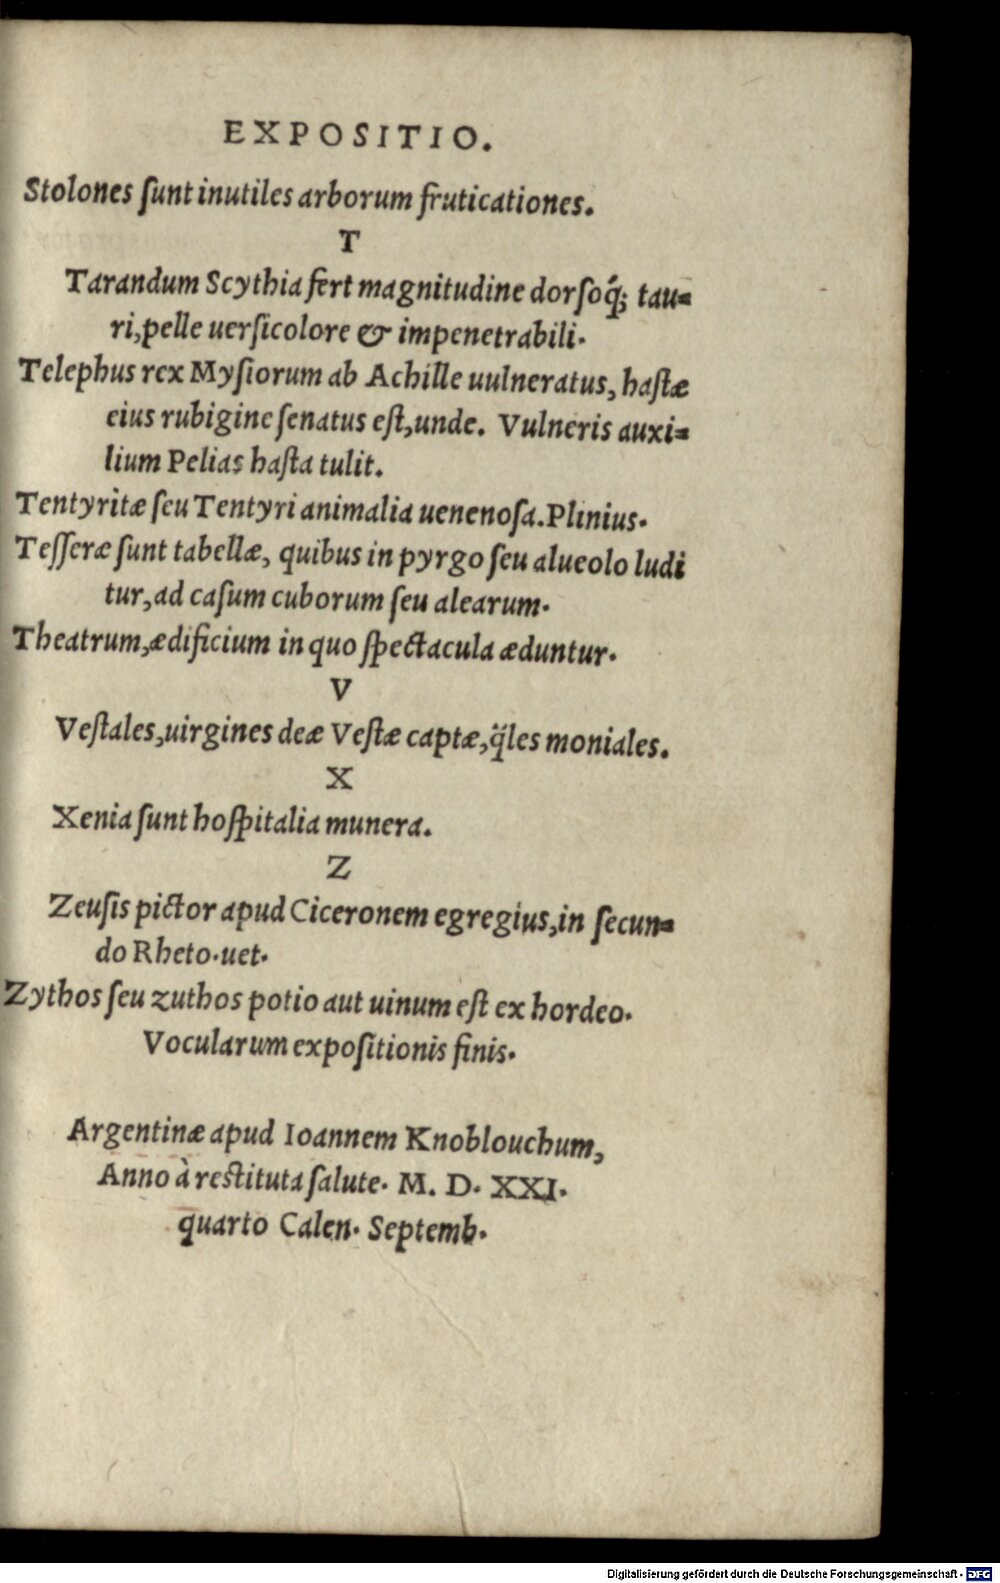 EXPOSITIO.
Stolones ſunt inutiles arborum fruticationes.
T
Tarandum Scythia fert magnitudine dorſoq́; tau=
ri, pelle uerſicolore & impenetrabili.
Telephus rex Myſiorum ab Achille uulneratus, haſtæ
eius rubigine ſenatus eſt, unde. Vulneris auxi=
lium Pelias haſta tulit.
Tentyritæ ſeu Tentyri animalia uenenoſa. Plinius.
Teſſeræ ſunt tabellæ, quibus in pyrgo ſeu alueolo ludi
tur, ad caſum cuborum ſeu alearum.
Theatrum, ædificium in quo ſpectacula æduntur.
V
Veſtales, uirgines deæ Veſtæ captæ, q̈les moniales.
X
Xenia ſunt hoſpitalia munera.
Z
Zeuſis pictor apud Ciceronem egregius, in ſecun=
do Rheto. uet.
Zythos ſeu zuthos potio aut uinum eſt ex hordeo.
Vocularum expoſitionis finis.
Argentinæ apud Ioannem Knoblouchum,
Anno à reſtituta ſalute. M. D. XXI.
quarto Calen. Septemb.
Digitalisierung gefördert durch die Deutsche Forschungsgemeinschaft - DFG